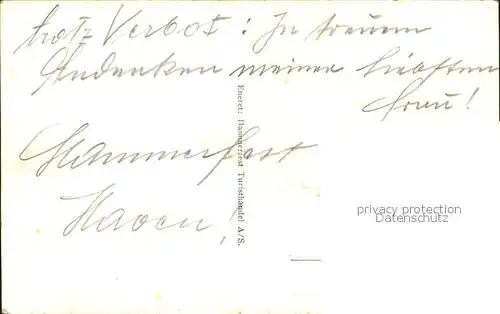 trotz Verbot: In treuem
Andenken meiner liebsten
Frau!
Hammerfest
Haven!
Eneret: Hammerfest Turisthandel A/S.
privacy protection
Datenschutz